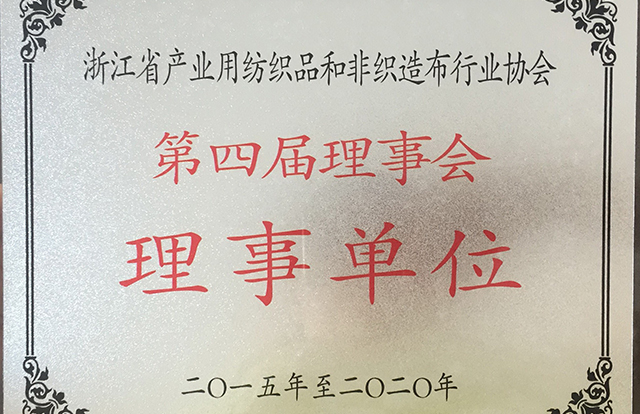 浙江省产业用纺织品和非织造布行业协会
第四届理事会
理事单位
二〇一五年至二〇二〇年